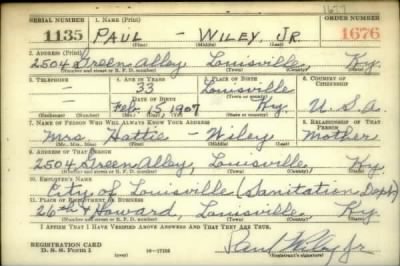 1677
SERIAL NUMBER 1. NAME (Print) ORDER NUMBER
1135 PAUL - WILEY, JR. 1676
(First) (Middle) (Last)
2. ADDRESS (Print)
2504 Green Alley, Louisville, Ky.
(Number and street or R. F. D. number) (Town) (County) (State)
3. TELEPHONE 4. AGE IN YEARS 5. PLACE OF BIRTH 6. COUNTRY OF CITIZENSHIP
- 33 Louisville
DATE OF BIRTH (Town or county)
Feb. 15, 1907 Ky. U.S.A.
(Mo.) (Day) (Yr.) (State or country)
7. NAME OF PERSON WHO WILL ALWAYS KNOW YOUR ADDRESS 8. RELATIONSHIP OF THAT PERSON
Mrs. Hattie - Wiley Mother
(Mr., Mrs., Miss) (First) (Middle) (Last)
9. ADDRESS OF THAT PERSON
2504 Green Alley, Louisville, Ky.
(Number and street or R. F. D. number) (Town) (County) (State)
10. EMPLOYER'S NAME
City of Louisville (Sanitation Dept)
11. PLACE OF EMPLOYMENT OR BUSINESS
26th & Howard, Louisville, Ky.
(Number and street or R. F. D. number) (Town) (County) (State)
I AFFIRM THAT I HAVE VERIFIED ABOVE ANSWERS AND THAT THEY ARE TRUE.
REGISTRATION CARD
D. S. S. Form 1 (over) Paul Wiley Jr
(Registrant's signature)